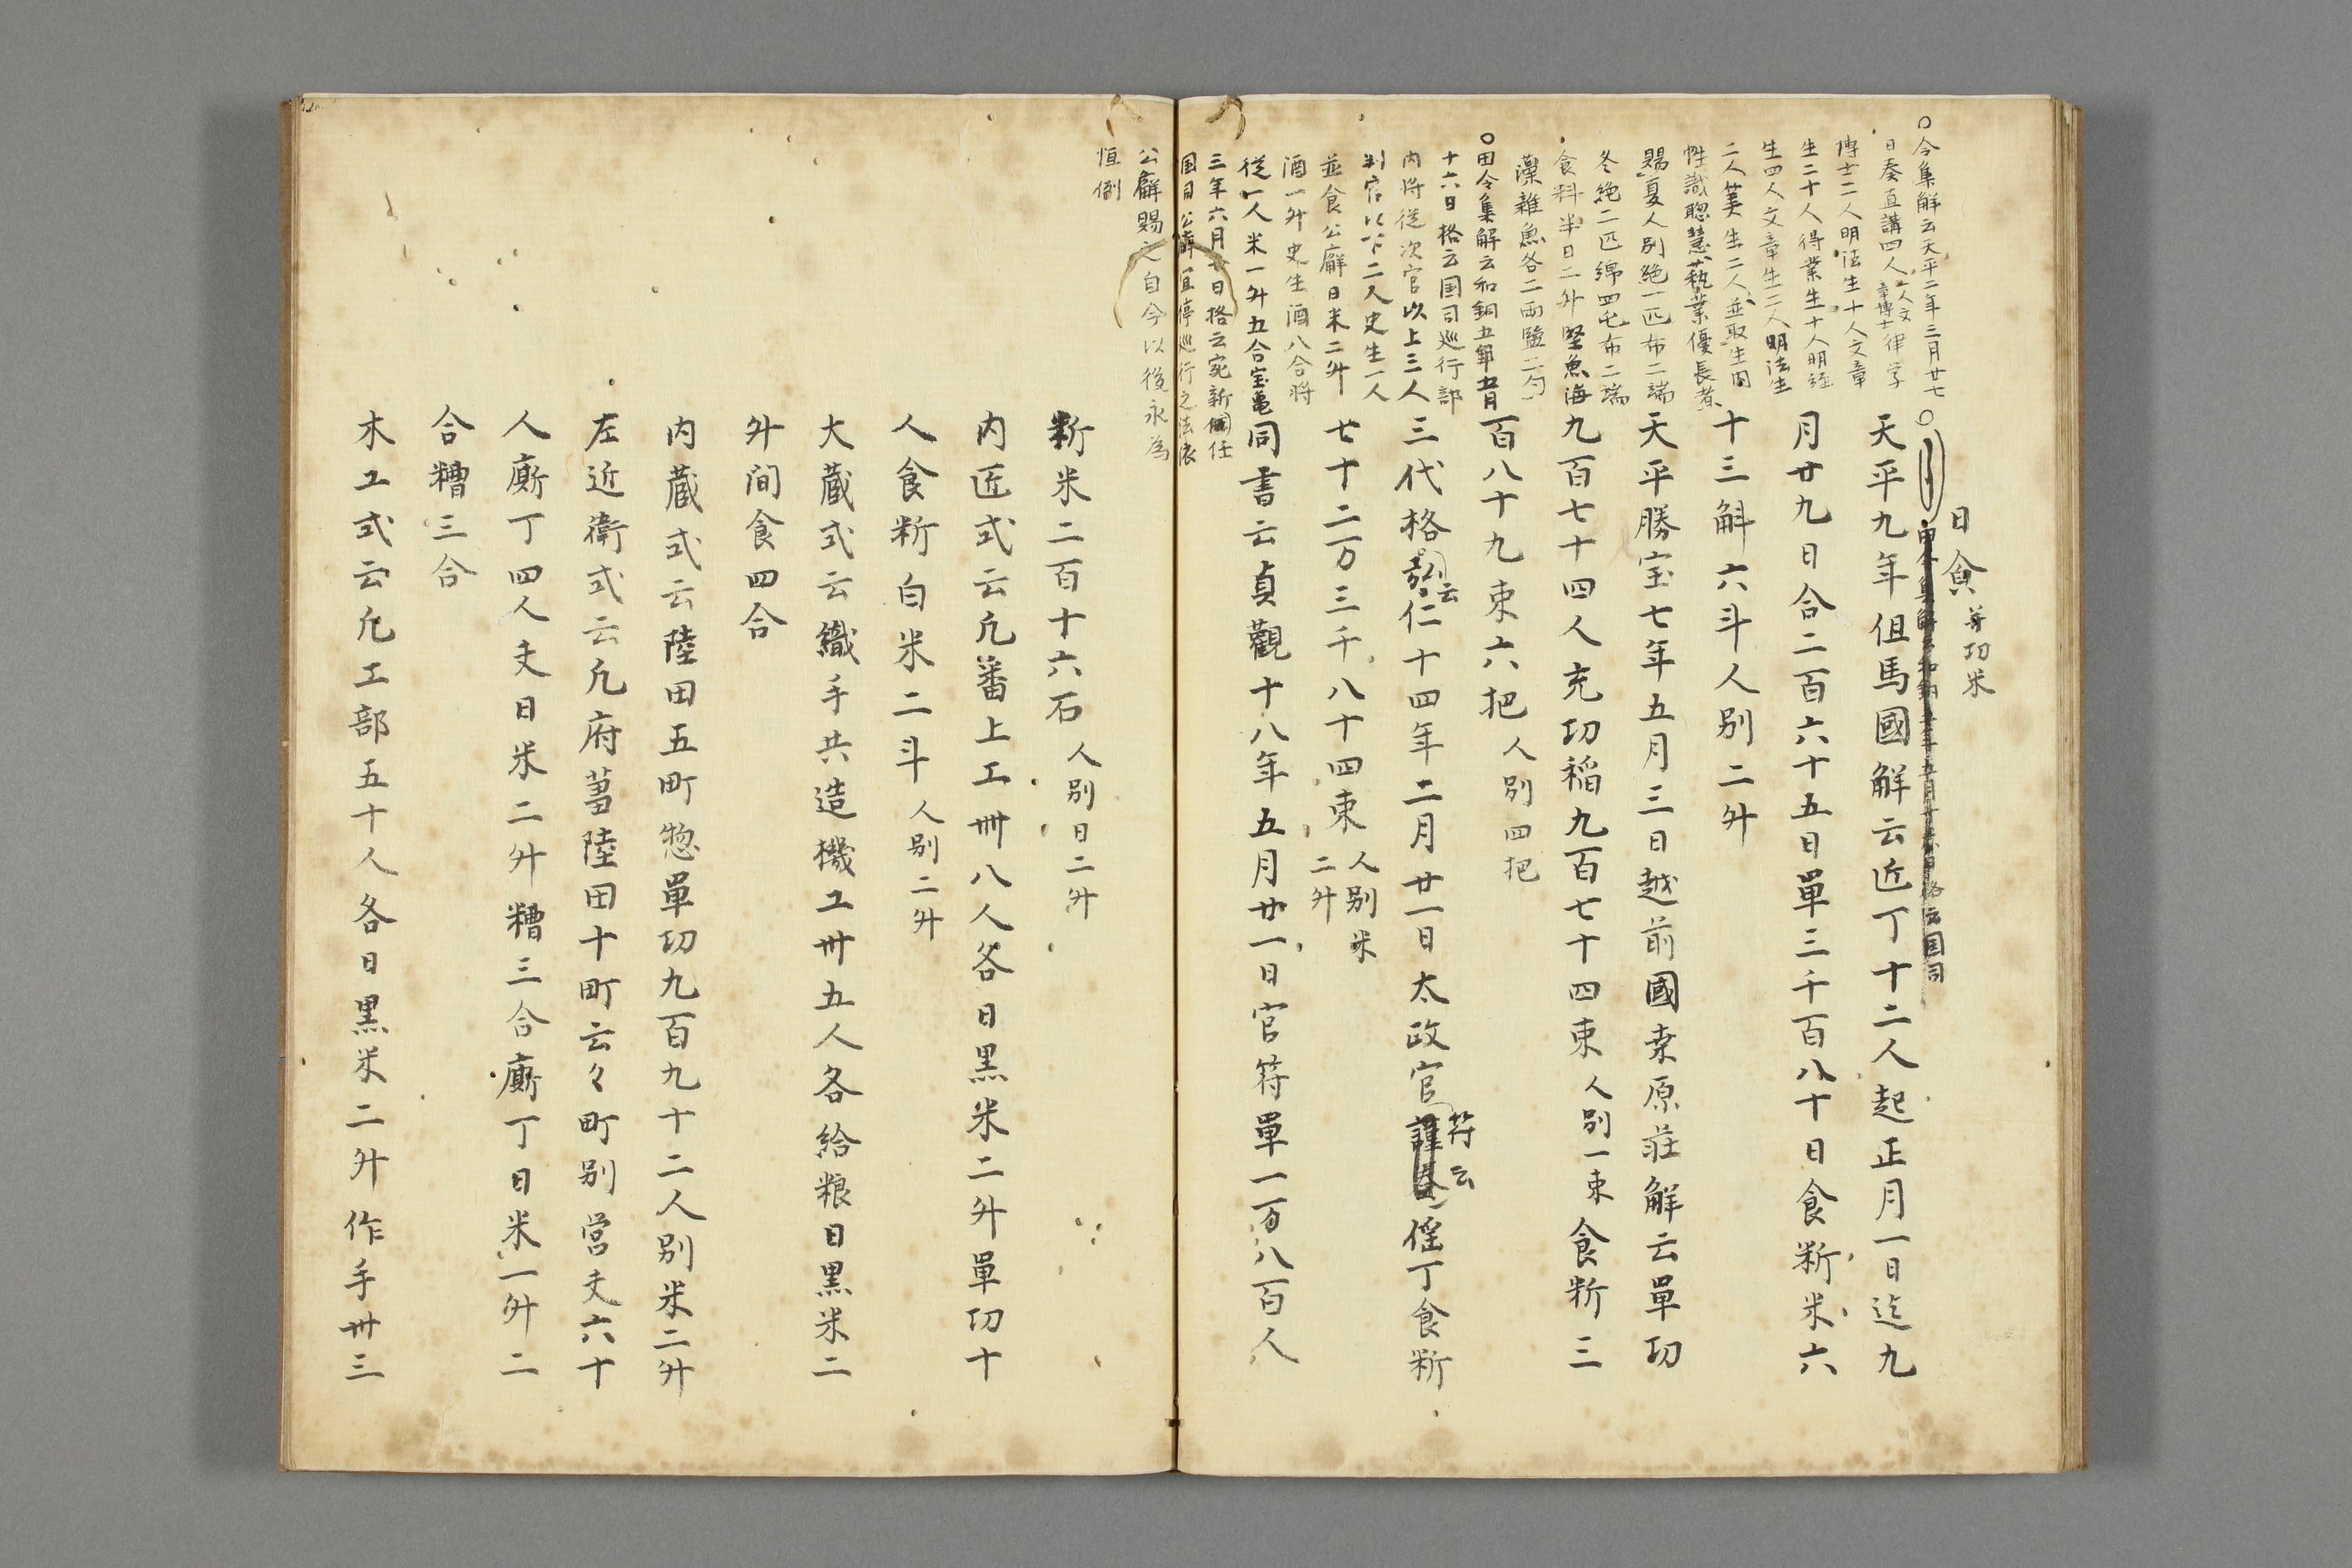 日食 并功米
〇令集解云天平二年三月廿七
日奏直講四人 一人文章博士 律学
博士二人明法生十人文章
生二十人得業生十人明経
生四人文章生二人明法生
二人筭生二人並取生内
性識聡慧藝業優長者
賜夏人別絁一匹布二端
冬絁二匹綿四屯布二端
食料米日二升堅魚海
藻雑魚各二両塩二勺
〇田令集解云和銅五年五月
十六日格云国司巡行部
内将従次官以上三人
判官以下二人史生一人
並食公廨日米二升
酒一升史生酒八合将
従一人米一升五合宝亀
三年六月廿日格云宛新國任
国司公廨宜停巡行之法依
公廨賜之自今以後永為
恒例
田令集解云和銅五年五月十六日格云国司
天平九年但馬國解云匠丁十二人起正月一日迄九
月廿九日合二百六十五日單三千百八十日食新米六
十三斛六斗人別二升
天平勝宝七年五月三日越前國桒原莊解云單功
九百七十四人充功稲九百七十四束 人別一束 食新三
百八十九束六把 人別四把
三代格云弘仁十四年二月廿一日太政官符云傜丁食新
七十二万三千八十四束 人別米二升
同書云貞觀十八年五月廿一日官符單一万八百人
新米二百十六石 人別日二升
内匠式云凢番上工卌八人各日黒米二升單功十
人食新白米二斗 人別二升
大蔵式云織手共造機工卌五人各給粮日黒米二
升間食四合
内蔵式云陸田五町惣單功九百九十二人別米二升
左近衛式云凢府菖陸田十町云々町別営夫六十
人廝丁四人夫日米二升糟三合廝丁日米一升二
合糟三合
木工式云凢工部五十人各日黒米二升作手卌三